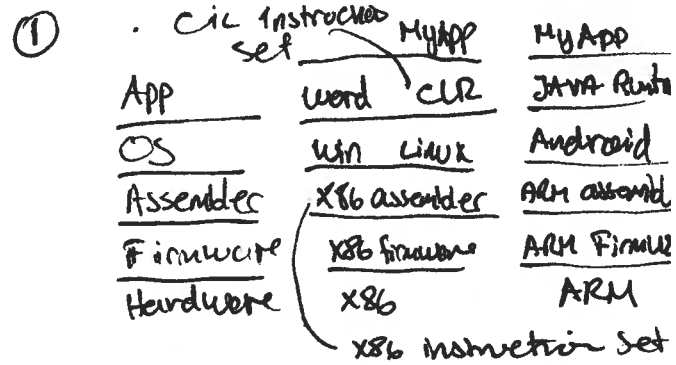 ① . CIL Instruction
set MyApp MyApp
App Word CLR JAVA Runti
OS Win Linux Android
Assembler X86 assembler ARM assembl
Firmware X86 firmware ARM Firmw
Hardware X86 ARM
X86 instruction set